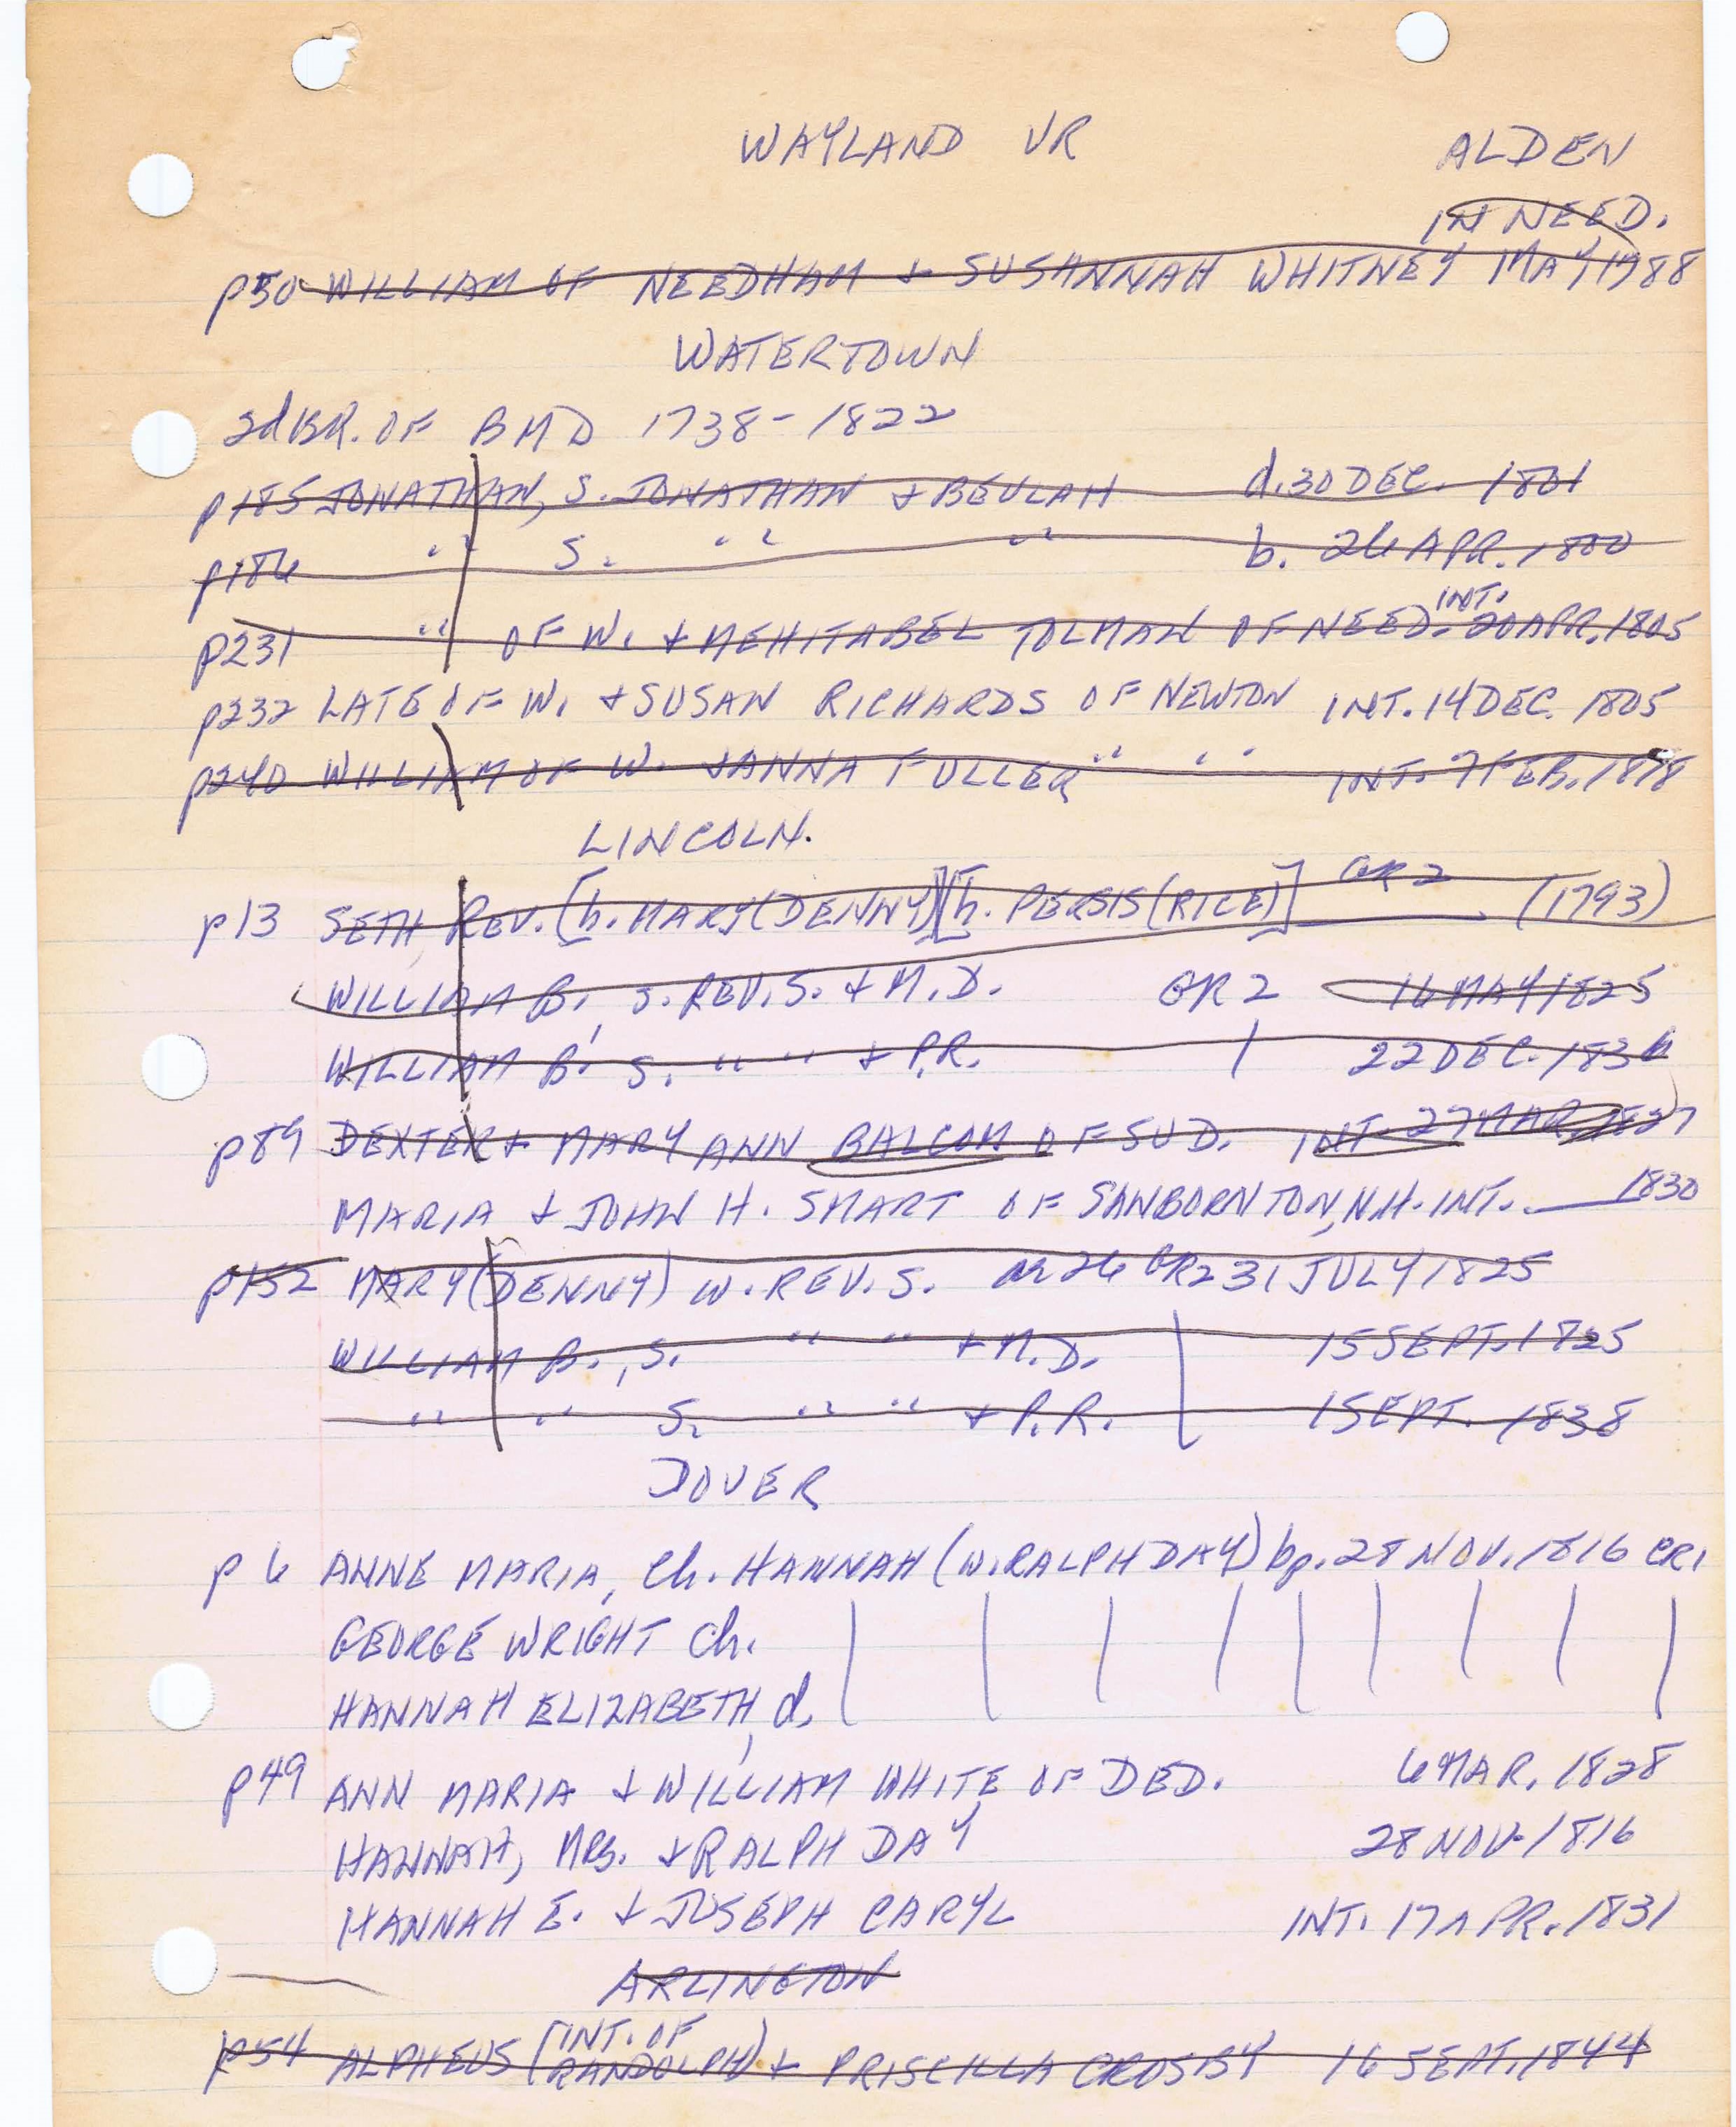 WAYLAND VR ALDEN
IN NEED.
p50 WILLIAM OF NEEDHAM + SUSANNAH WHITNEY MAY 1788
WATERTOWN
2d BR. OF BMD 1738-1822
p185 JONATHAN, S. JONATHAN + BEULAH d. 30 DEC. 1801
p186 " S. " " b. 26 APR. 1800
p231 " OF W. + MEHITABEL TOLMAN OF NEED. INT. 20 APR. 1805
p232 LATE OF W. + SUSAN RICHARDS OF NEWTON INT. 14 DEC. 1805
p240 WILLIAM OF W. + ANNA FULLER " " INT. 7 FEB. 1818
LINCOLN.
p13 SETH, REV. [h. MARY (DENNY)] [h. PERSIS (RICE)] GR2 ___ (1793)
WILLIAM B., s. REV. S. + M. D. GR2 16 MAY 1825
WILLIAM B., s. " " + P.R. | 22 DEC. 1836
p89 DEXTER + MARY ANN BALCOM OF SUD. INT. 27 MAR. 1827
MARIA + JOHN H. SMART OF SANBORNTON, N.H. INT. ___ 1830
p152 MARY (DENNY) w. REV. S. a. 26 GR2 31 JULY 1825
WILLIAM B., S. " " + M.D. | 15 SEPT. 1825
" " S. " " + P.R. | 1 SEPT. 1838
DOVER
p 6 ANNE MARIA, Ch. HANNAH (W. RALPH DAY) bp. 28 NOV. 1816 CR1
GEORGE WRIGHT Ch. | | | | | | | | |
HANNAH ELIZABETH, d.
p49 ANN MARIA + WILLIAM WHITE OF DED. 6 MAR. 1828
HANNAH, MRS. + RALPH DAY 28 NOV. 1816
HANNAH E. + JOSEPH CARYL INT. 17 APR. 1831
ARLINGTON
p54 ALPHEUS (INT. OF RANDOLPH) + PRISCILLA CROSBY 16 SEPT. 1844